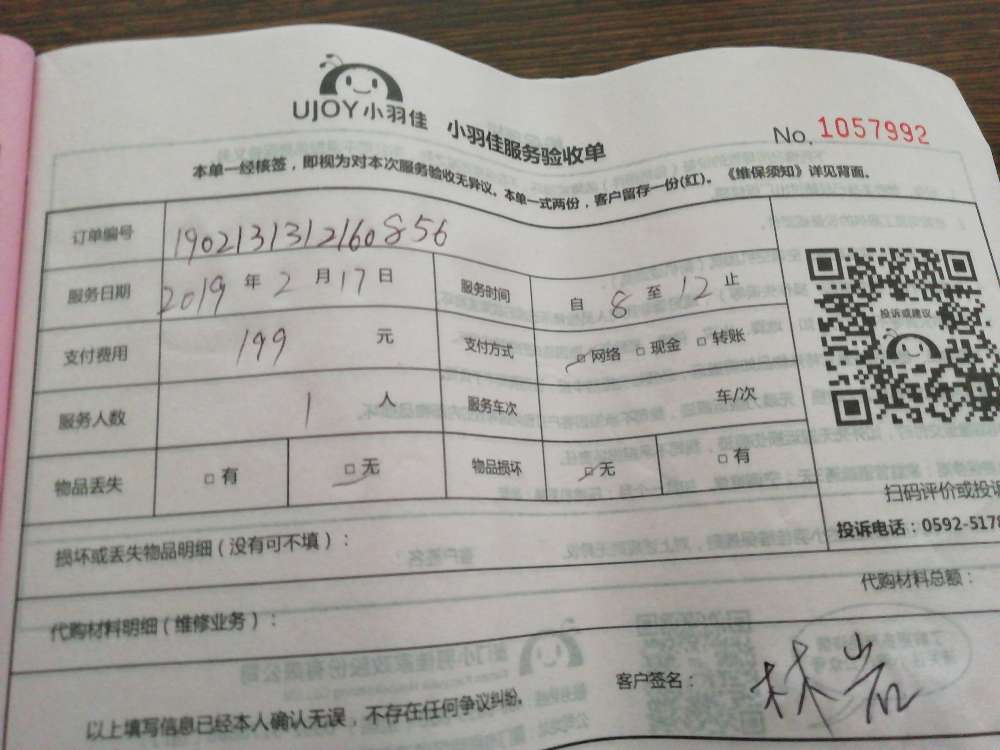 UJOY小羽佳 小羽佳服务验收单 No. 1057992
本单一经核签，即视为对本次服务验收无异议。本单一式两份，客户留存一份(红)。《维保须知》详见背面。
订单编号 1902131312160856
服务日期 2019 年 2 月 17 日 服务时间 自 8 至 12 止
投诉或建议
支付费用 199 元 支付方式 □网络 □现金 □转账
服务人数 1 人 服务车次 车/次
物品丢失 □有 □无 物品损坏 □无 □有
扫码评价或投诉
投诉电话：0592-5178
损坏或丢失物品明细（没有可不填）：
代购材料总额：
代购材料明细（维修业务）：
客户签名： 林岩
以上填写信息已经本人确认无误，不存在任何争议纠纷。